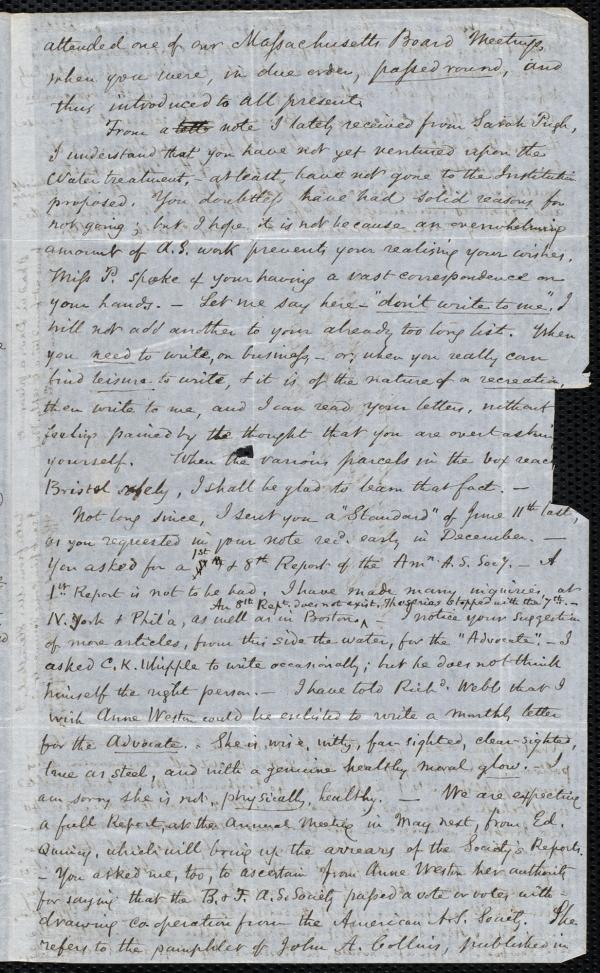 attended one of our Massachusetts Board Meetings,
when you were, in due order, passed round, and
thus introduced to all present.
From a note I lately received from Sarah Pugh,
I understand that you have not yet ventured upon the
Water treatment, - at least, have not gone to the Institution
proposed. You doubtless have had solid reasons for
not going; but I hope it is not because an overwhelming
amount of A.S. work prevents your realising your wishes.
Miss P. spoke of your having a vast correspondence on
your hands. - Let me say here - "don't write to me". I
will not add another to your already too long list. When
you need to write, on business, - or, when you really can
find leisure to write, & it is of the nature of a recreation,
then write to me, and I can read your letters, without
feelings pained by the thought that you are overtasking
yourself. When the various parcels in the box reach
Bristol safely, I shall be glad to learn that fact. -
Not long since, I sent you a "Standard" of June 11th last,
as you requested in your note recd. early in December. -
You asked for a 1st & 8th Report of the Amn. A.S. Socy. - A
1st Report is not to be had. I have made many inquiries, at
An 8th Rept. does not exist. The series stopped with the 7th. -
N. York & Phil'a, as well as in Boston. - I notice your suggestion
of more articles, from this side the water, for the "Advocate". - I
asked C. K. Whipple to write occasionally; but he does not think
himself the right person. - I have told Richd. Webb that I
wish Anne Weston could be enlisted to write a monthly letter
for the Advocate. - She is wise, witty, far-sighted, clear-sighted,
true as steel, and with a genuine healthy moral glow. - I
am sorry she is not, physically, healthy. - We are expecting
a full Report, at the Annual Meeting in May next, from Ed.
Quincy, which will bring up the arrears of the Society's Reports.
- You asked me, too, to ascertain from Anne Weston her authority
for saying that the B. & F. A. S. Society passed a vote or votes with-
drawing co-operation from the American A. S. Society. She
refers to the pamphlet of John A. Collins, published in